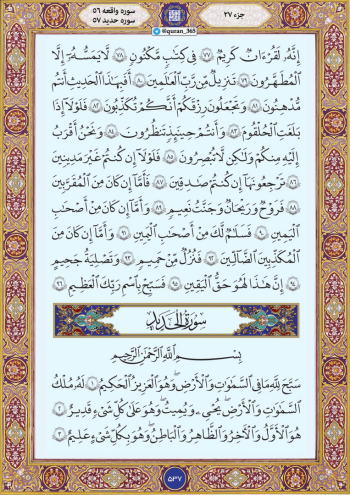 سوره واقعه ۵۶
سوره حدید ۵۷
@quran_365
جزء ۲۷
إِنَّهُۥ لَقُرْءَانٌ كَرِيمٌ ﴿٧٧﴾ فِى كِتَٰبٍ مَّكْنُونٍ ﴿٧٨﴾ لَّا يَمَسُّهُۥٓ إِلَّا
ٱلْمُطَهَّرُونَ ﴿٧٩﴾ تَنزِيلٌ مِّن رَّبِّ ٱلْعَٰلَمِينَ ﴿٨٠﴾ أَفَبِهَٰذَا ٱلْحَدِيثِ أَنتُم
مُّدْهِنُونَ ﴿٨١﴾ وَتَجْعَلُونَ رِزْقَكُمْ أَنَّكُمْ تُكَذِّبُونَ ﴿٨٢﴾ فَلَوْلَآ إِذَا
بَلَغَتِ ٱلْحُلْقُومَ ﴿٨٣﴾ وَأَنتُمْ حِينَئِذٍ تَنظُرُونَ ﴿٨٤﴾ وَنَحْنُ أَقْرَبُ
إِلَيْهِ مِنكُمْ وَلَٰكِن لَّا تُبْصِرُونَ ﴿٨٥﴾ فَلَوْلَآ إِن كُنتُمْ غَيْرَ مَدِينِينَ
﴿٨٦﴾ تَرْجِعُونَهَآ إِن كُنتُمْ صَٰدِقِينَ ﴿٨٧﴾ فَأَمَّآ إِن كَانَ مِنَ ٱلْمُقَرَّبِينَ
﴿٨٨﴾ فَرَوْحٌ وَرَيْحَانٌ وَجَنَّتُ نَعِيمٍ ﴿٨٩﴾ وَأَمَّآ إِن كَانَ مِنْ أَصْحَٰبِ
ٱلْيَمِينِ ﴿٩٠﴾ فَسَلَٰمٌ لَّكَ مِنْ أَصْحَٰبِ ٱلْيَمِينِ ﴿٩١﴾ وَأَمَّآ إِن كَانَ مِنَ
ٱلْمُكَذِّبِينَ ٱلضَّآلِّينَ ﴿٩٢﴾ فَنُزُلٌ مِّنْ حَمِيمٍ ﴿٩٣﴾ وَتَصْلِيَةُ جَحِيمٍ
﴿٩٤﴾ إِنَّ هَٰذَا لَهُوَ حَقُّ ٱلْيَقِينِ ﴿٩٥﴾ فَسَبِّحْ بِٱسْمِ رَبِّكَ ٱلْعَظِيمِ ﴿٩٦﴾
سورة الحديد
بِسْمِ ٱللَّهِ ٱلرَّحْمَٰنِ ٱلرَّحِيمِ
سَبَّحَ لِلَّهِ مَا فِى ٱلسَّمَٰوَٰتِ وَٱلْأَرْضِ وَهُوَ ٱلْعَزِيزُ ٱلْحَكِيمُ ﴿١﴾ لَهُۥ مُلْكُ
ٱلسَّمَٰوَٰتِ وَٱلْأَرْضِ يُحْىِۦ وَيُمِيتُ وَهُوَ عَلَىٰ كُلِّ شَىْءٍ قَدِيرٌ ﴿٢﴾
هُوَ ٱلْأَوَّلُ وَٱلْءَاخِرُ وَٱلظَّٰهِرُ وَٱلْبَاطِنُ وَهُوَ بِكُلِّ شَىْءٍ عَلِيمٌ ﴿٣﴾
۵۳۷